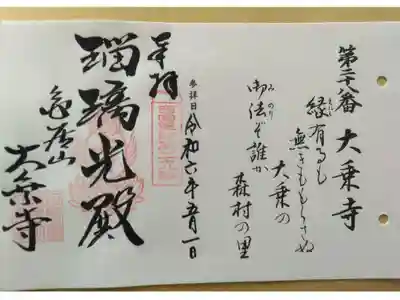 第二八番 大乗寺
縁有るも
無きももらさぬ
大乗の
みのり
御法ぞ誰か
森村の里
参詣日 令和六年五月一日
奉拝
瑠璃光殿
亀居山
大乗寺